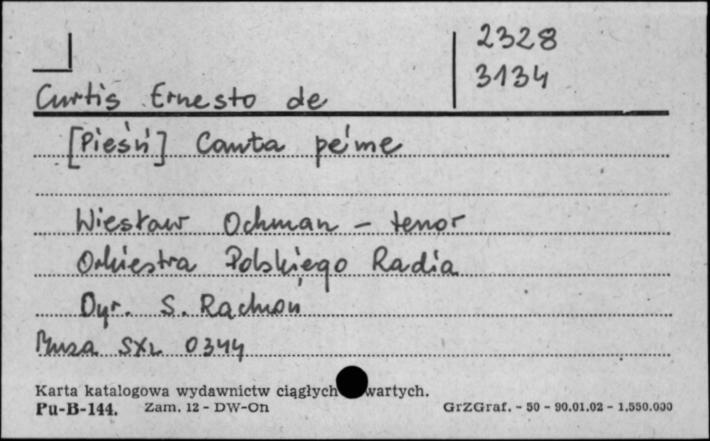 2328
3134
Curtis Ernesto de
[Pieśń] Canta pe'me
Wiesław Ochman – tenor
Orkiestra Polskiego Radia
Dyr. S. Rachoń
Muza SXL 0344
Karta katalogowa wydawnictw ciągłych wartych.
Pu-B-144. Zam. 12 - DW-On GrZGraf. - 50 - 90.01.02 - 1.550.000